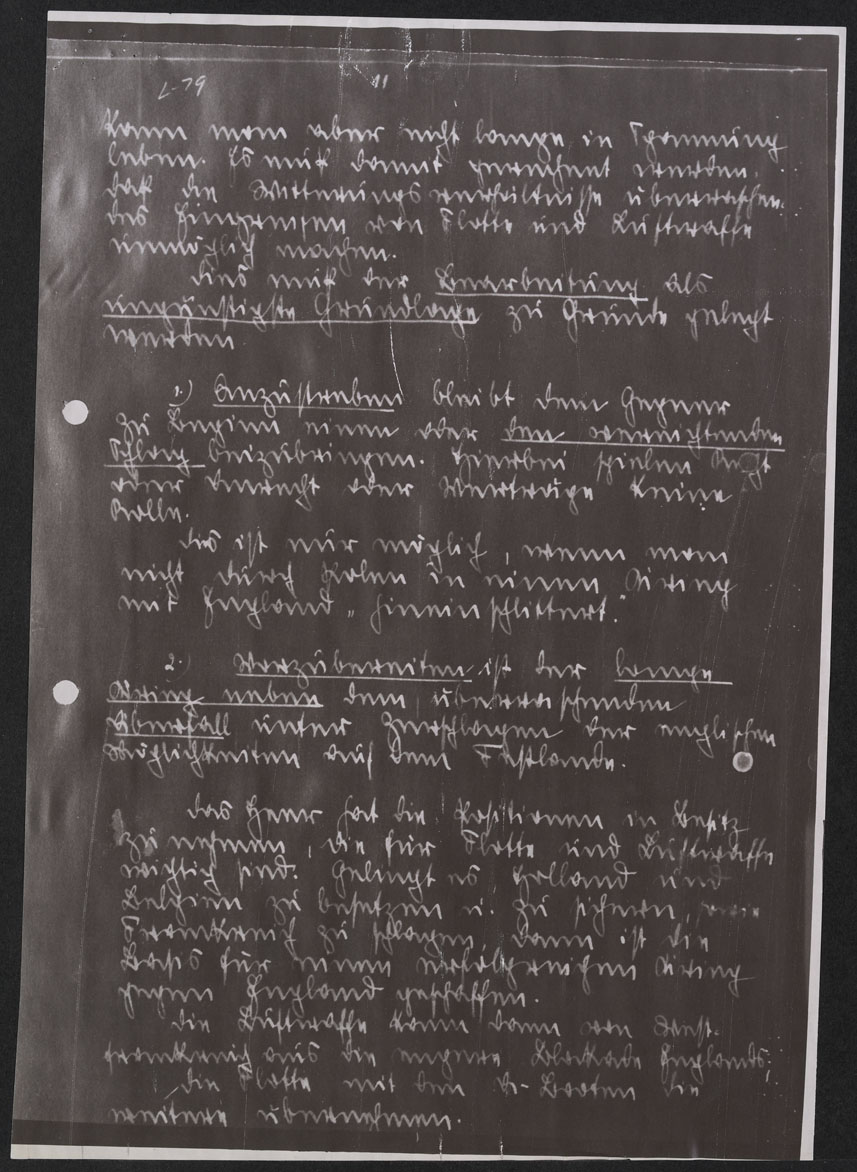 L-79
11
kann man aber nicht lange in Spannung
leben. Es muß damit gerechnet werden,
daß die Witterungsverhältnisse überraschen-
des Eingreifen von Flotte und Luftwaffe
unmöglich machen.
Dies muß der Bearbeitung als
ungünstigste Grundlage zu Grunde gelegt
werden
1.) Anzustreben bleibt dem Gegner
zu Beginn einen oder den vernichtenden
Schlag beizubringen. Hierbei spielen Recht
oder Unrecht oder Verträge keine
Rolle.
Dies ist nur möglich, wenn man
nicht durch Polen in einen Krieg
mit England „hineinschlittert."
2.) Vorzubereiten ist der lange
Krieg neben dem überraschenden
Überfall unter Zerschlagen der englischen
Möglichkeiten auf dem Festlande.
Das Heer hat die Positionen in Besitz
zu nehmen, die für Flotte und Luftwaffe
wichtig sind. Gelingt es Holland und
Belgien zu besetzen u. zu sichern, sowie
Frankreich zu schlagen dann ist die
Basis für einen erfolgreichen Krieg
gegen England geschaffen.
Die Luftwaffe kann dann von West-
frankreich aus die engere Blockade Englands,
die Flotte mit den U-Booten die
weitere übernehmen.